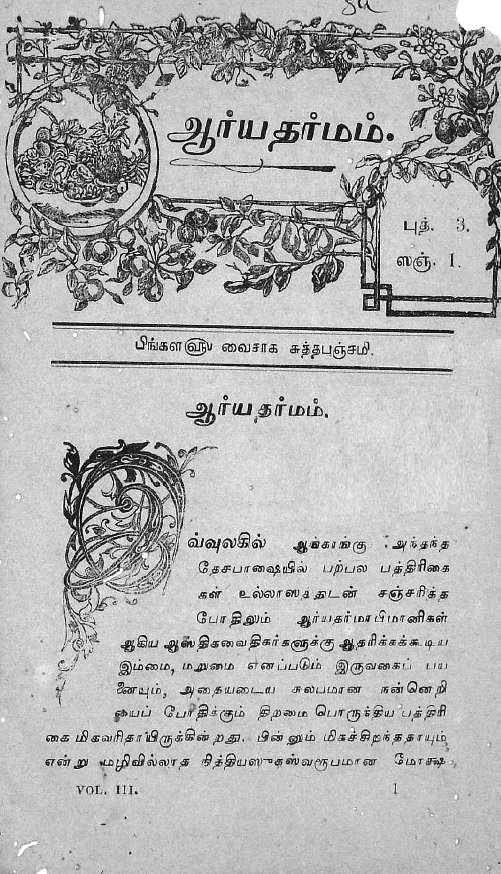 ஆர்யதர்மம்.
புத். 3.
ஸஞ். 1.
பிங்கள௵ வைசாக சுத்தபஞ்சமி.
ஆர்யதர்மம்.
இவ்வுலகில் ஆங்காங்கு அந்தந்த
தேசபாஷையில் பற்பல பத்திரிகை
கள் உல்லாஸத்துடன் சஞ்சரித்த
போதிலும் ஆர்யதர்மாபிமானிகள்
ஆகிய ஆஸ்திகவைதிகர்களுக்கு ஆதரிக்கக்கூடிய
இம்மை, மறுமை எனப்படும் இருவகைப் பய
னையும், அதையடைய சுலபமான நன்னெறி
யைப் போதிக்கும் திறமை பொருந்திய பத்திரி
கை மிகவரிதாயிருக்கின்றது. பின்னும் மிகச்சிறந்ததாயும்,
என்றுமழிவில்லாத நித்தியஸுகஸ்வரூபமான மோக்ஷ
VOL. III.
1